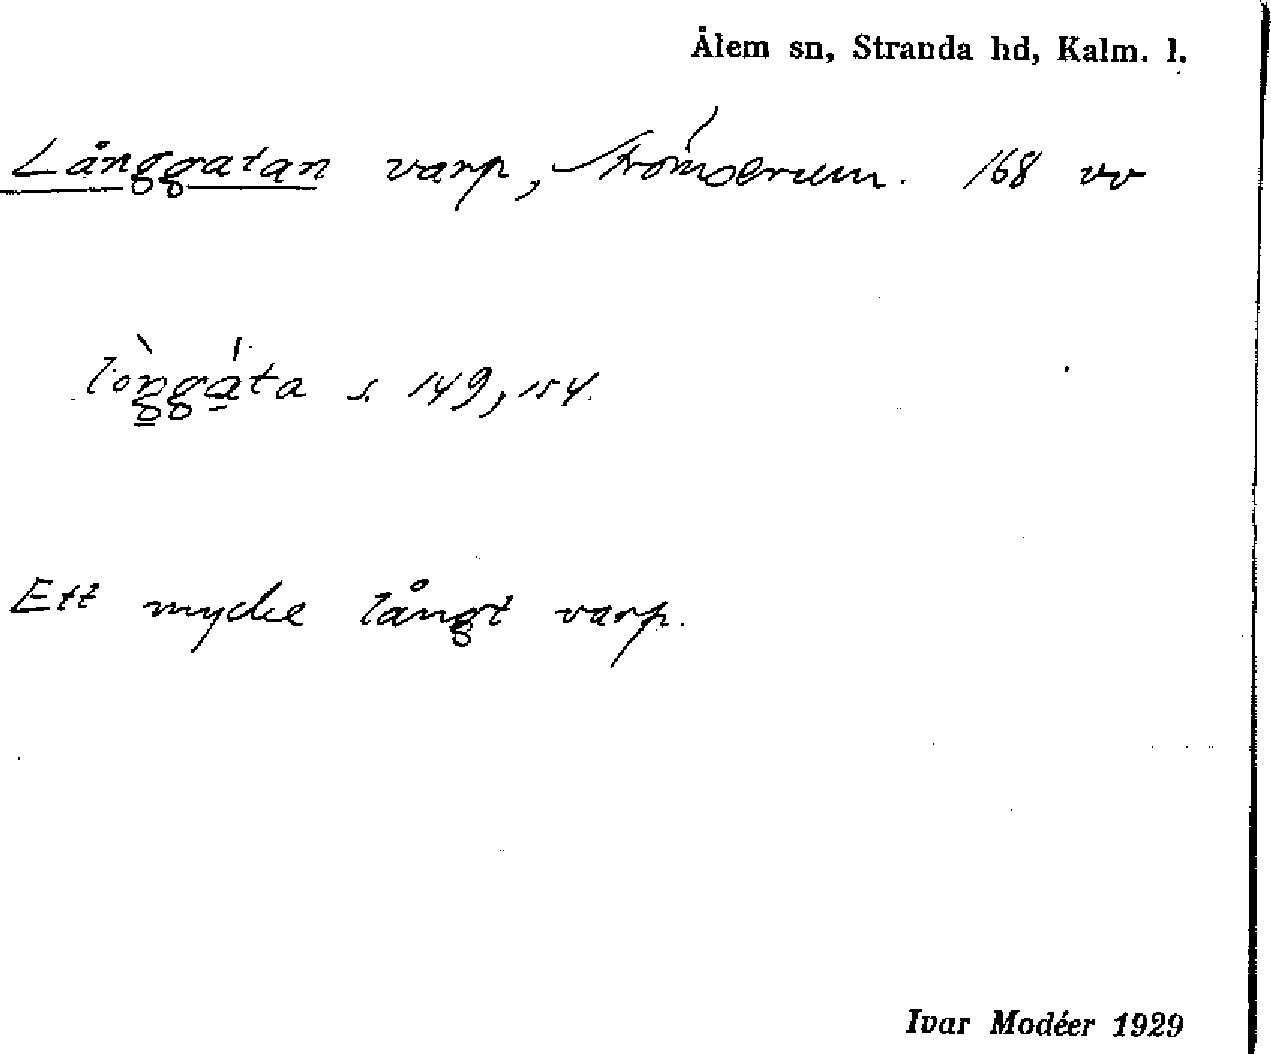 Ålem sn, Stranda hd, Kalm. l.
Långgatan varp, Strömserum. 168 vv
lòŋgáta s. 149, 154.
Ett mycke långt varp.
Ivar Modéer 1929